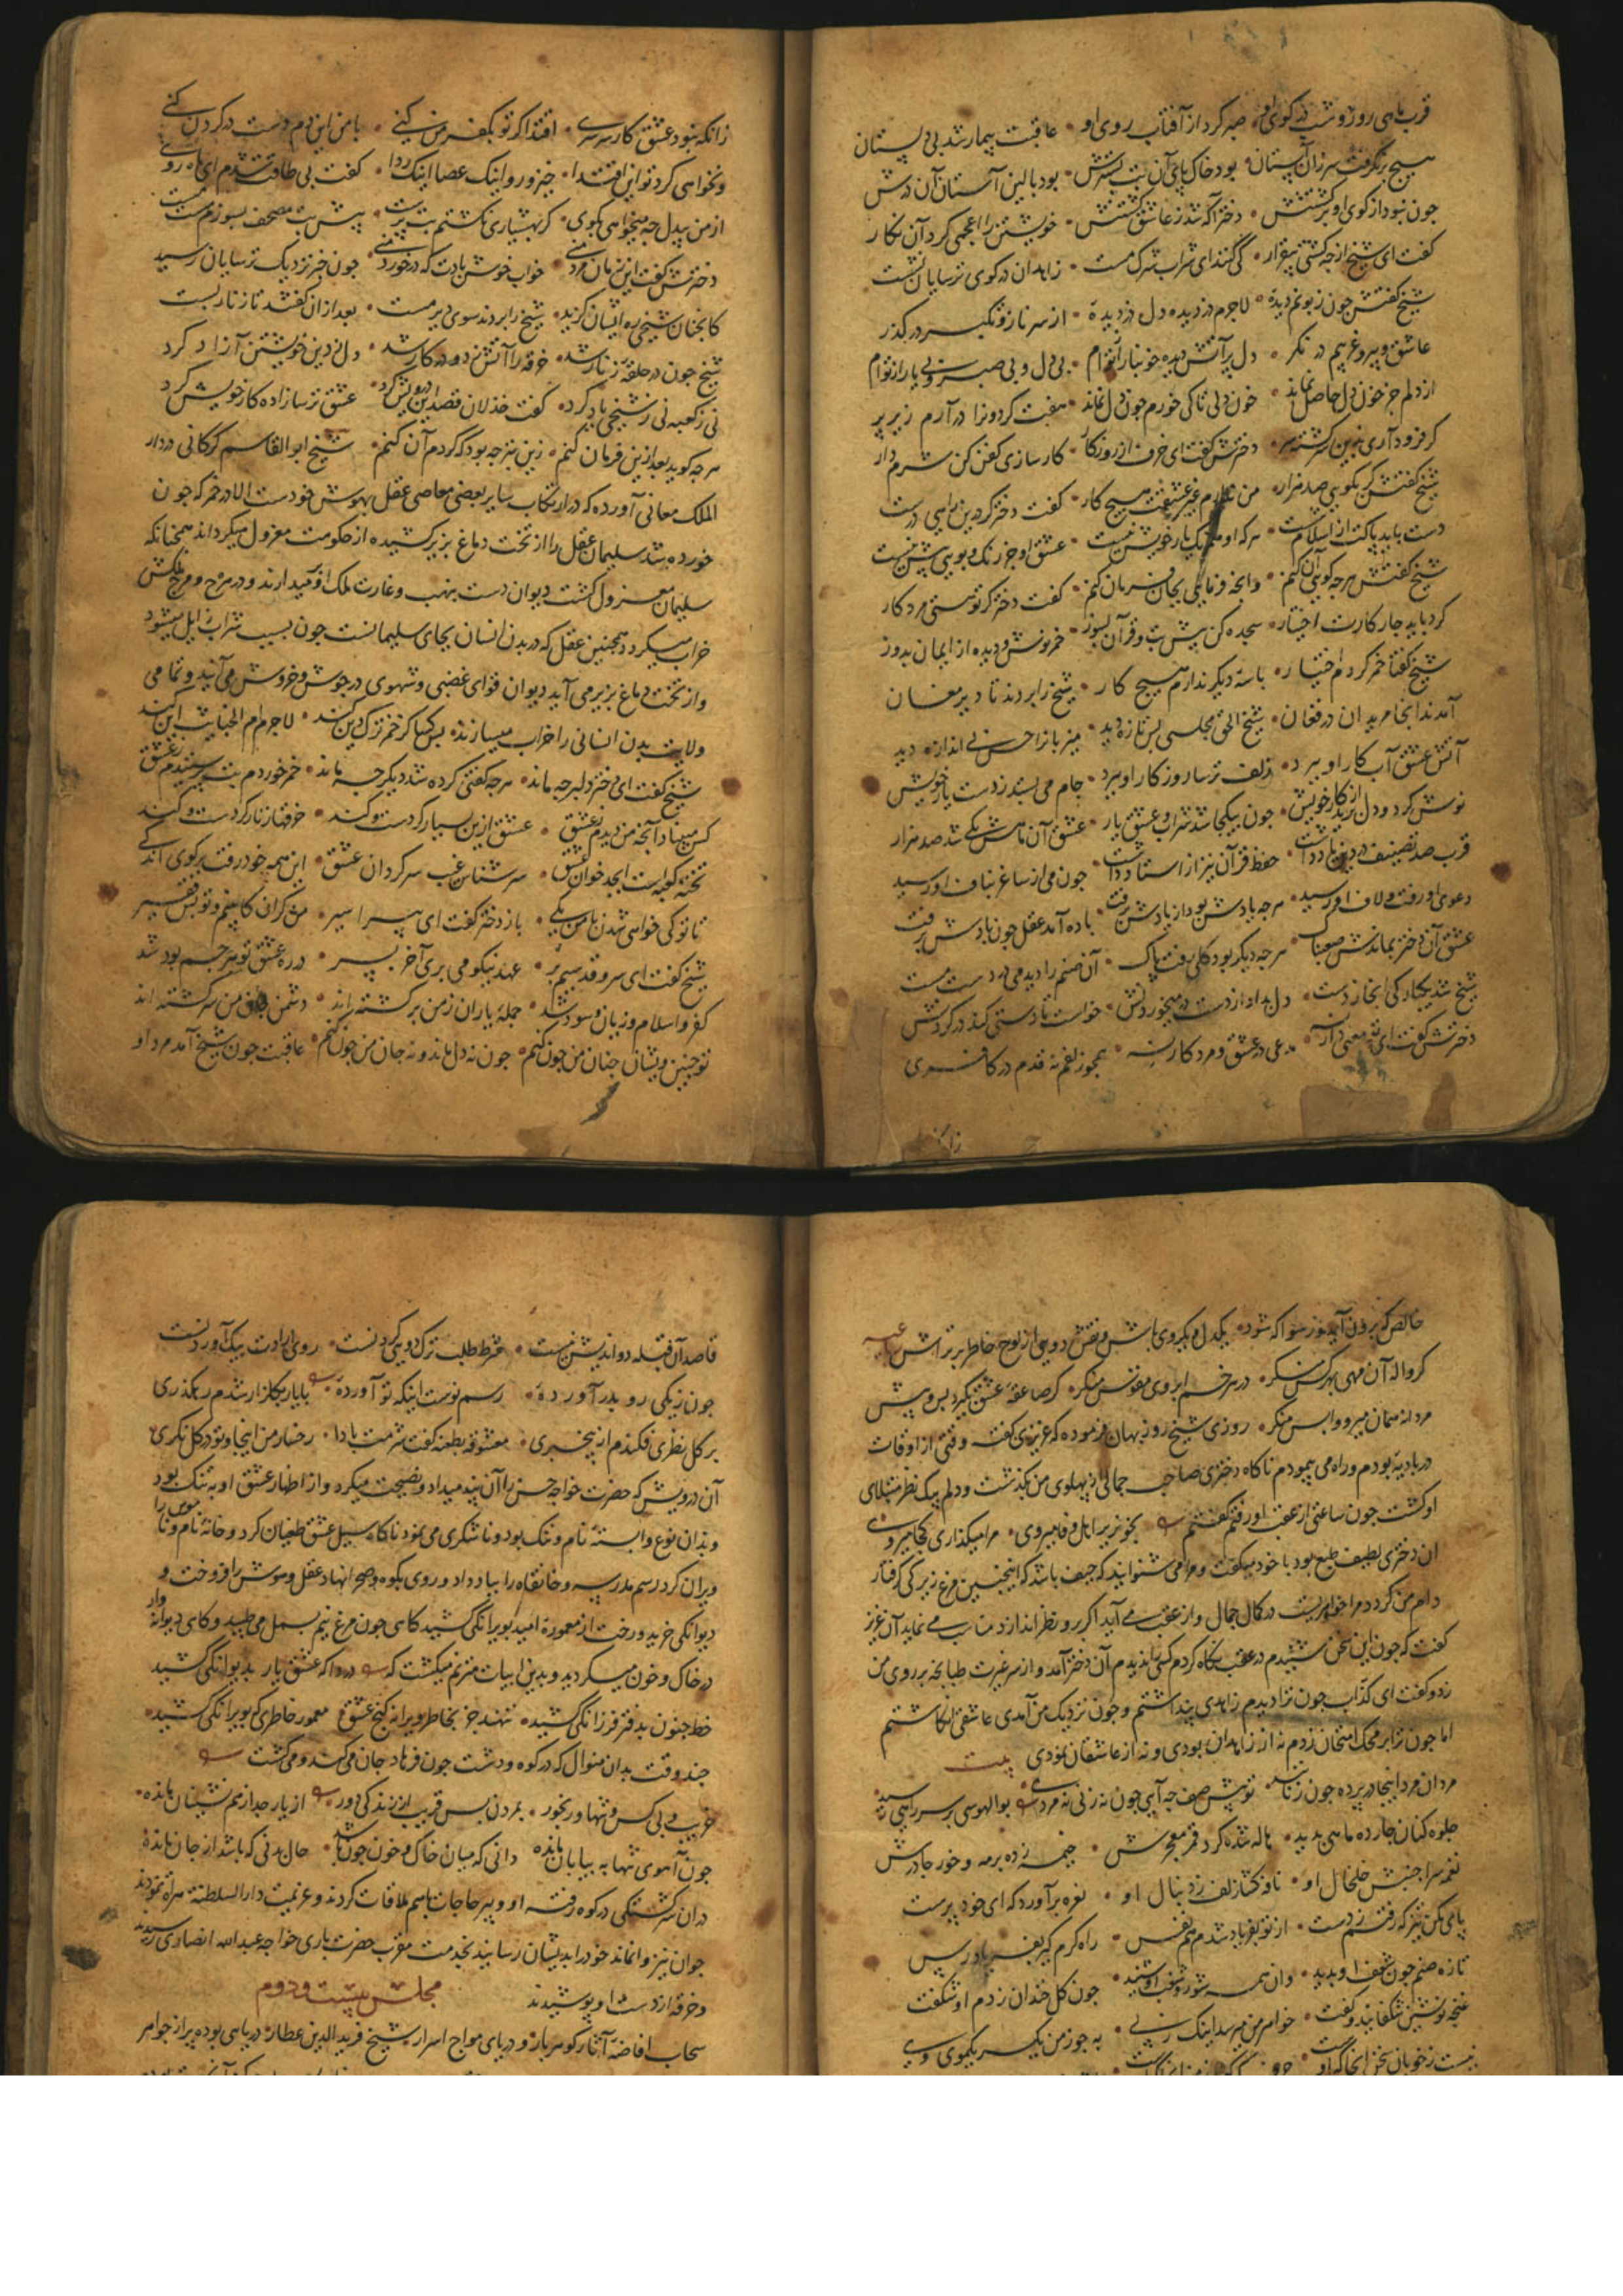 قرب ماهی روز و شب در کوی او • صبر کرد از آفتاب روی او • عاقبت بیمار شد بی دلستان
هیچ برنگرفت سر زان آستان • بود خاک پای آن بت بسترش • بود بالین آستان آن درش
چون نبود از کوی او برگشتنش • دختر آگه شد ز عاشق گشتنش • خویشتن را اعجمی کرد آن نگار
گفت ای شیخ از چه گشتی بیقرار • کی کنند ای شراب شرک مست • زاهدان در کوی ترسایان نشست
شیخ گفتش چون زبونم دیدهٔ • لاجرم دزدیده دل دزدیدهٔ • از سر ناز و تکبر در گذر
عاشق و پیر و غریبم در نگر • دل پر آتش دیده خونبار از توام • بی دل و بی صبر و بی یار از توام
از دلم جز خون دل حاصل نماند • خون دل تا کی خورم چون دل نماند • هفت گردون را در آرم زیر پر
گر فرود آری بدین سرگشته سر • دخترش گفت ای خرف از روزگار • کار سازی کفن کن شرم دار
شیخ گفتش گر بگویی صد هزار • من ندارم غیر عشقت هیچ کار • گفت دختر گر درین راهی درست
دست باید پاکت از اسلام شست • هر که او همرنگ یار خویش نیست • عشق او جز رنگ و بویی بیش نیست
شیخ گفتش هر چه گویی آن کنم • وانچه فرمایی بجان فرمان کنم • گفت دختر گر تو هستی مرد کار
کرد باید چار کارت اختیار • سجده کن پیش بت و قرآن بسوز • خمر نوش و دیده از ایمان بدوز
شیخ گفتا خمر کردم اختیار • با سهٔ دیگر ندارم هیچ کار • شیخ را بردند تا دیر مغان
آمدند آنجا مریدان در فغان • شیخ الحق مجلسی بس تازه دید • میزبان را حسن بی اندازه دید
آتش عشق آب کار او ببرد • زلف ترسا روزگار او ببرد • جام می بستد ز دست یار خویش
نوش کرد و دل برید از کار خویش • چون بیکجا شد شراب و عشق یار • عشق آن ماهش یکی شد صد هزار
قرب صد تصنیف در دین یاد داشت • حفظ قرآن نیز از استاد داشت • چون می از ساغر بناف او رسید
دعوی او رفت و لاف او رسید • هر چه یادش بود از یادش برفت • باده آمد عقل چون بادش برفت
عشق آن دختر بماندش صعبناک • هر چه دیگر بود کلی رفت پاک • آن صنم را دید می در دست مست
شیخ شد یکبارگی آنجا ز دست • دل بداد از دست در می خوردنش • خواست تا دستی کند در گردنش
دخترش گفت ای تو معنی دار نه • مدعی در عشق و مرد کار نه • همچو زلفم نه قدم در کافری
زانکه نبود عشق کار سرسری • اقتدا گر تو بکفر من کنی • با من این دم دست در گردن کنی
ور نخواهی کرد تو این اقتدا • خیز و رو اینک عصا اینک ردا • گفت بی طاقت شدم ای ماه روی
از من بیدل چه میخواهی بگوی • گر بهشیاری نگشتم بت پرست • پیش بت مصحف بسوزم مست مست
دخترش گفت این زمان مرد منی • خواب خوش بادت که در خورد منی • چون خبر نزدیک ترسایان رسید
کانچنان شیخی ره ایشان گزید • شیخ را بردند سوی دیر مست • بعد از آن گفتند تا زنار بست
شیخ چون در حلقهٔ زنار شد • خرقه را آتش زد و در کار شد • دل ز دین خویشتن آزاد کرد
نی ز کعبه نی ز شیخی یاد کرد • گفت خذلان قصد این درویش کرد • عشق ترسازاده کار خویش کرد
هر چه گوید بعد ازین فرمان کنم • زین بتر چه بود که کردم آن کنم • شیخ ابوالقاسم کرکانی در دار
الملک معانی آورده که در ارتکاب سایر بعضی معاصی عقل بهوش خودست الا در خمر که چون
خورده شد سلیمان عقل را از تخت دماغ بزیر کشیده از حکومت معزول میگرداند همچنانکه
سلیمان معزول گشت دیوان دست بنهب و غارت ملک او کشیدارند و در هرج و مرج ملکش
خراب میگردد همچنین عقل که در بدن انسان بجای سلیمانست چون بسبب شراب زایل میشود
و از تخت دماغ بزیر می آید دیوان قوای غضبی و شهوی در جوش و خروش می آیند و تمامی
ولایت بدن انسانی را خراب میسازند • بس کسا کز خمر ترک دین کند • لاجرم ام الخبائث این کند
شیخ گفت ای دختر دلبر چه ماند • هر چه گفتی کرده شد دیگر چه ماند • خمر خوردم بت پرستیدم ز عشق
کس مبیناد آنچه من دیدم ز عشق • عشق ازین بسیار کردست و کند • خرقه با زنار کردست و کند
تختهٔ کعبه است ابجد خوان عشق • سرشناس غیب سرگردان عشق • این همه خود رفت برگوی اندکی
تا تو کی خواهی شدن با من یکی • باز دختر گفت ای پیر اسیر • من گران کابینم و تو بس فقیر
شیخ گفت ای سرو قد سیم بر • عهد نیکو می بری آخر بسر • در ره عشق تو هر چم بود شد
کفر و اسلام و زیان و سود شد • جملهٔ یاران ز من برگشته اند • دشمن جان من سرگشته اند
تو چنین و ایشان چنان من چون کنم • چون نه دل ماند و نه جان من چون کنم • عاقبت چون شیخ آمد مرد او
خالص که برون آید و زر سوا که شود • یکدل و یکروی باش و نقش دویی از لوح خاطر بتراش رباعیه
کر واله آن مهی بهر کس منگر • در هر خم ابروی مقوس منگر • کر صاعقهٔ عشق بگیرد پس و پیش
مردانه همان میرو و واپس منگر • روزی شیخ روزبهان فرموده که عزیزی گفت وقتی از اوقات
در بادیه بودم و راه می پیمودم ناگاه دختری صاحب جمالی از پهلوی من بگذشت و دلم بیک نظر مبتلای
او گشت چون ساعتی از عقب او رفتم گفتم
ان دختری لطیف طبع بود با خود میگفت و مرا می شنوایند که حیف باشد که اینچنین مرغ زیرکی گرفتار
دام من گردد مرا خواهریست در کمال جمال و از عقب می آید اگر برو نظر اندازد مناسب می نماید آن عزیز
گفت که چون این سخن شنیدم در عقب نگاه کردم کسی را ندیدم آن دختر آمد و از سر غیرت طپانچه بر روی من
زد و گفت ای کذاب چون ترا دیدم زاهدی پنداشتم و چون نزدیک من آمدی عاشقی انگاشتم
اما چون ترا بر محک امتحان زدم نه از زاهدان بودی و نه از عاشقان نمودی بیت
مردان مرد اینجا در پرده چون زنانند • تو پیش صف چه آیی چون نه زنی نه مردی • بوالهوسی بر سر راهی رسید
جلوه کنان چارده ماهی بدید • هاله شده گرد قمر معجرش • خیمه زده بر مه و خور چادرش
نغمه سرا جنبش خلخال او • نافه کشا زلف ز دنبال او • نعره برآورد که ای خود پرست
پا می مکن تیز که رفتم ز دست • از تو بفریاد شدم هم نفس • راه کرم گیر بفریاد رس
تازه صنم چون شغف او بدید • وان همه شور و شغب او شنید • چون گل خندان ز دم او شکفت
غنچهٔ نوشین شکفانید و گفت • خواهر من میرسد اینک ز پی • به جو ز من یک سر یکموی وی
نیست ز خوبان سخن آنجا که او
قاصد آن قبله دو اندیش نیست • شرط طلب ترک دویی کردنست • روی ارادت بیک آوردنست
چون زیکی رو بدر آوردهٔ • رسم نوست اینکه تو آوردهٔ • با یار بگلزار شدم رهگذری
بر گل نظری فکندم از بیخبری • معشوقه بطعنه گفت شرمت بادا • رخسار من اینجا و تو در گل نگری
آن درویش که حضرت خواجه حسن را آن پند میداد و نصیحت میکرد و از اظهار عشق او به تنگ بود
و بدان نوع وابستهٔ نام و ننگ بود و ناشکری می نمود ناگاه سیل عشق طغیان کرد و خانهٔ نام و ناموس را
ویران کرد رسم مدرسه و خانقاه را بباد داد و روی بکوه و صحرا نهاد عقل و هوش را فروخت و
دیوانگی خرید و رخت از معمورهٔ امید بویرانگی کشید گاهی چون مرغ نیم بسمل می طپید و گاهی دیوانه وار
در خاک و خون میگردید و بدین ابیات مترنم میگشت که دردا که عشق یار بدیوانگی کشید
خط جنون بدفتر فرزانگی کشید • ننهند جز بخاطر ویرانه گنج عشق معمور خاطری که بویرانگی کشید •
چند وقت بدان منوال که در کوه و دشت چون فرهاد جان می کند و می گشت
غریب و بی کس و تنها و رنجور • بمردن بس قریب از زندگی دور • از یار جدا ز هم نشینان مانده •
چون آهوی تنها به بیابان مانده دانی که میان خاک و خون چون باشد • حال بدنی که باشد از جان مانده
در ان سرگشتگی در کوه رفت او و پیر حاجات باهم ملاقات کردند و عزیمت دارالسلطنهٔ هراة نمودند
جوان نیز وانماند خود را بدیشان رسانید بخدمت مقرب حضرت باری خواجه عبدالله انصاری رسیدند
و خرقه از دست او پوشیدند مجلس بیست و دوم
سحاب افاضه آثار گوهربار و دریای مواج اسرار شیخ فریدالدین عطار • دریایی بوده پر از جواهر